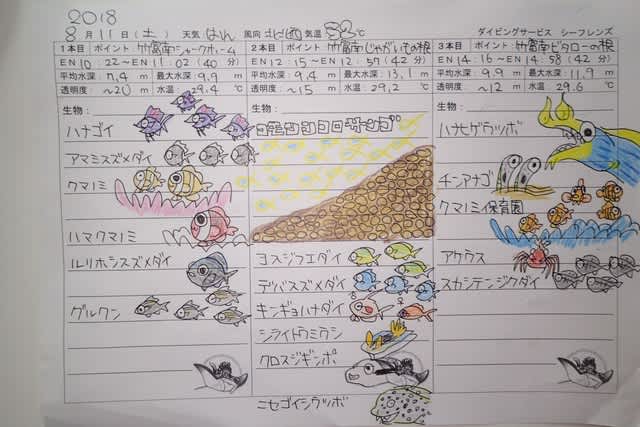 2018
8月11日(土) 天気 はれ 風向 北西 気温 33℃ ダイビングサービス シーフレンズ
1本目 ポイント 竹富南シャークホーム
EN 10:22〜EN 11:02 (40分)
平均水深: 7.4m 最大水深: 9.9m
透明度: 〜20m 水温: 29.4℃
生物:
ハナゴイ
アマミスズメダイ
クマノミ
ハマクマノミ
ルリホシスズメダイ
グルクン
2本目 ポイント 竹富南じゃがいもの根
EN 12:15〜EX 12:59 (42分)
平均水深: 9.4m 最大水深: 13.1m
透明度: 〜15m 水温: 29.2℃
生物:
コモンシコロサンゴ
ヨスジフエダイ
デバスズメダイ
キンギョハナダイ
シライトウミウシ
クロスジギンポ
ニセゴイシウツボ
3本目 ポイント 竹富南ビタローの根
EN 14:16〜EN 14:58 (42分)
平均水深: 9.9m 最大水深: 11.9m
透明度: 〜12m 水温: 29.6℃
生物:
ハナヒゲウツボ
チンアナゴ
クマノミ保育園
アケウス
スカシテンジクダイ